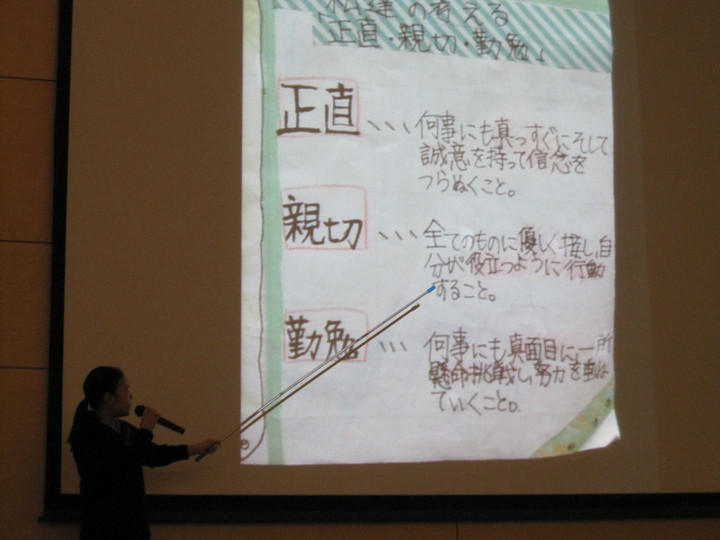 私達の考える
「正直・親切・勤勉」
正直
、、、何事にも真っすぐにそして
誠意を持って信念を
つらぬくこと。
親切
、、、全てのものに優しく接し、自
分が役立つように行動
すること。
勤勉
、、、何事にも真面目に、一所
懸命挑戦し、努力を重ね
ていくこと。